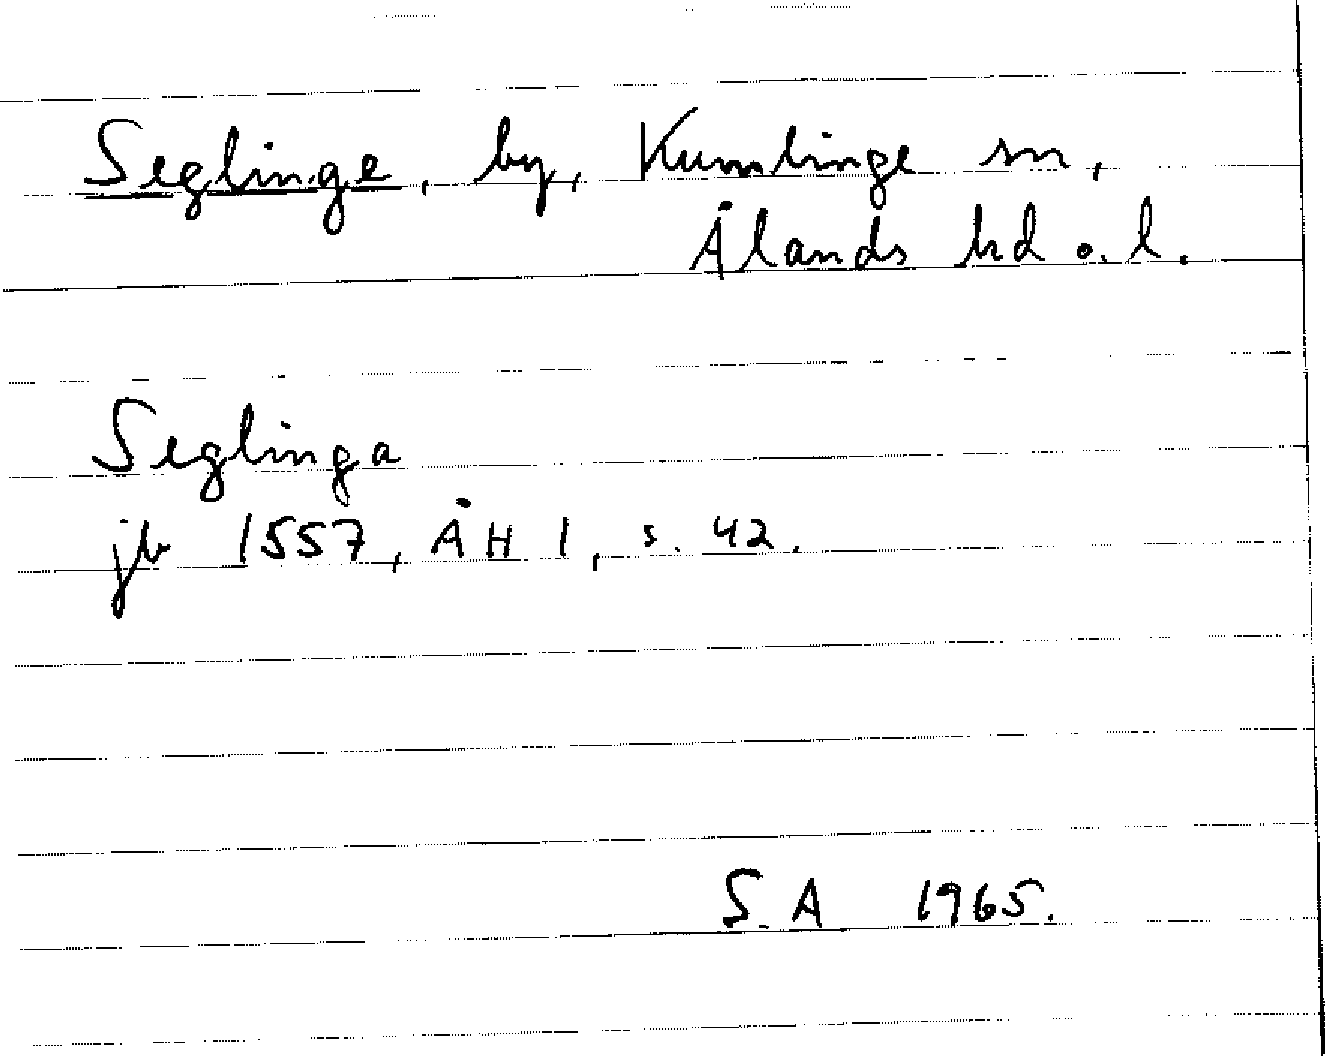 Seglinge, by, Kumlinge sn,
Ålands hd o. l.
Seglinga
jb 1557, ÅH 1, s. 42.
S. A 1965.